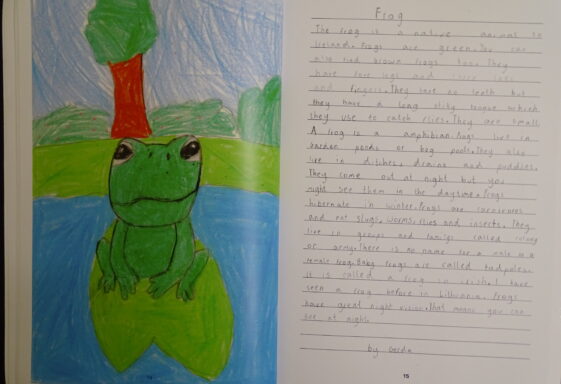 Frog
The frog is a native animal to
Ireland. Frogs are green. You can
also find brown frogs too. They
have four legs and toes
and fingers. They have no teeth but
they have a long sticky tongue which
they use to catch flies. They are small.
A frog is a amphibian. Frogs live in
garden ponds or bog pools. They also
live in ditches, drains and puddles.
They come out at night but you
might see them in the daytime. Frogs
hibernate in winter. Frogs are carnivores
and eat slugs, worms, flies and insects. They
live in groups and familys called colony
or army. There is no name for a male or a
female frog. Baby frogs are called tadpoles.
it is called a frog in irish. I have
seen a frog before in Lithuania. Frogs
have great night vision. That means you can
see at night.
by
15